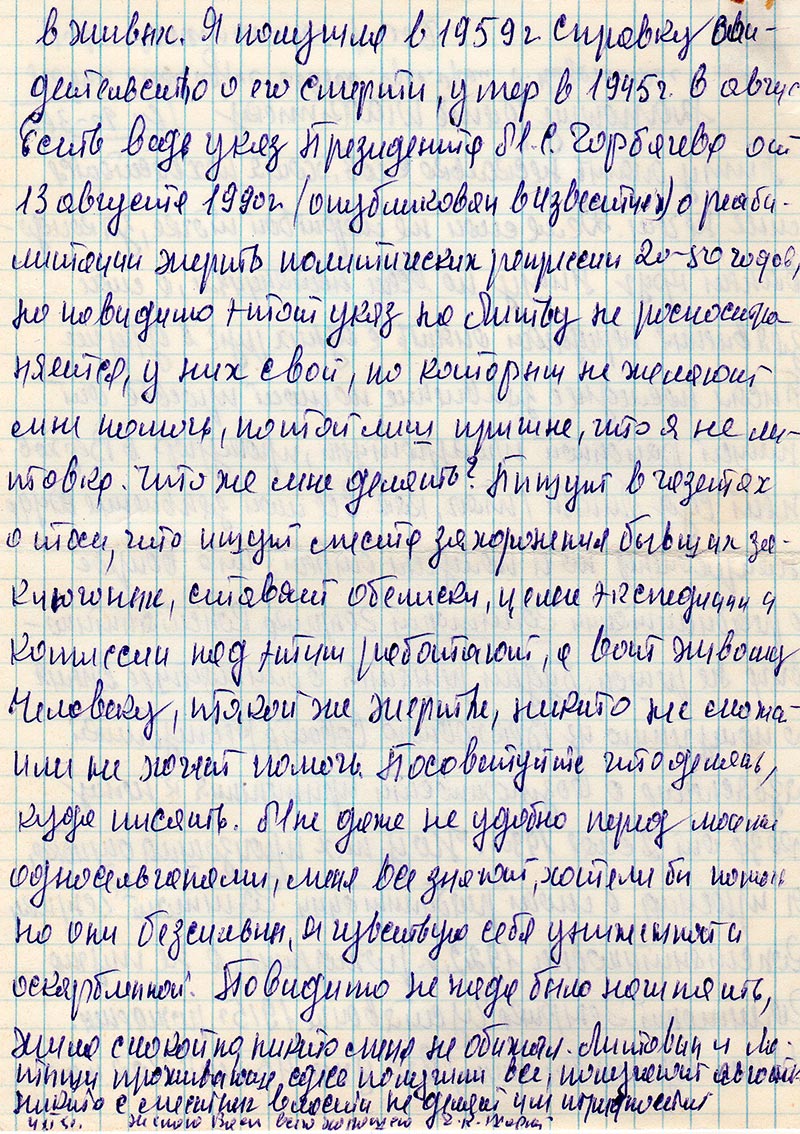 в живых. Я получила в 1959 г. справку сви-
детельство о его смерти, умер в 1945 г. в авгус
Есть ведь указ Президента М.С. Горбачева от
13 августа 1990 г. (опубликован в известиях) о реаби-
литации жертв политических репрессий 20-50 годов,
но повидимо этот указ на Литву не распостра
няется, у них свой, по которым не желают
мне помочь, по той лиш причине, что я не ли-
товка. Что же мне делать? Пишут в газетах
о том, что ищут места захоронения бывших за-
ключоных, ставят обелиски, целые экспедиции и
комиссии над этим работают, а вот живому
человеку, такой же жертве, никто не может
или не хочет помочь. Посоветуйте что делать,
куда писать. Мне даже не удобно перед моими
односельчанами, меня все знают, хотели бы помочь
но они безсильны, я чувствую себя униженной и
оскорбленной. Повидимо не надо было начинать,
жила спокойно никто меня не обижал. Литовцы и ла-
тыши проживающие здесь получили все, получают льготы
никто с местных власти не делает им